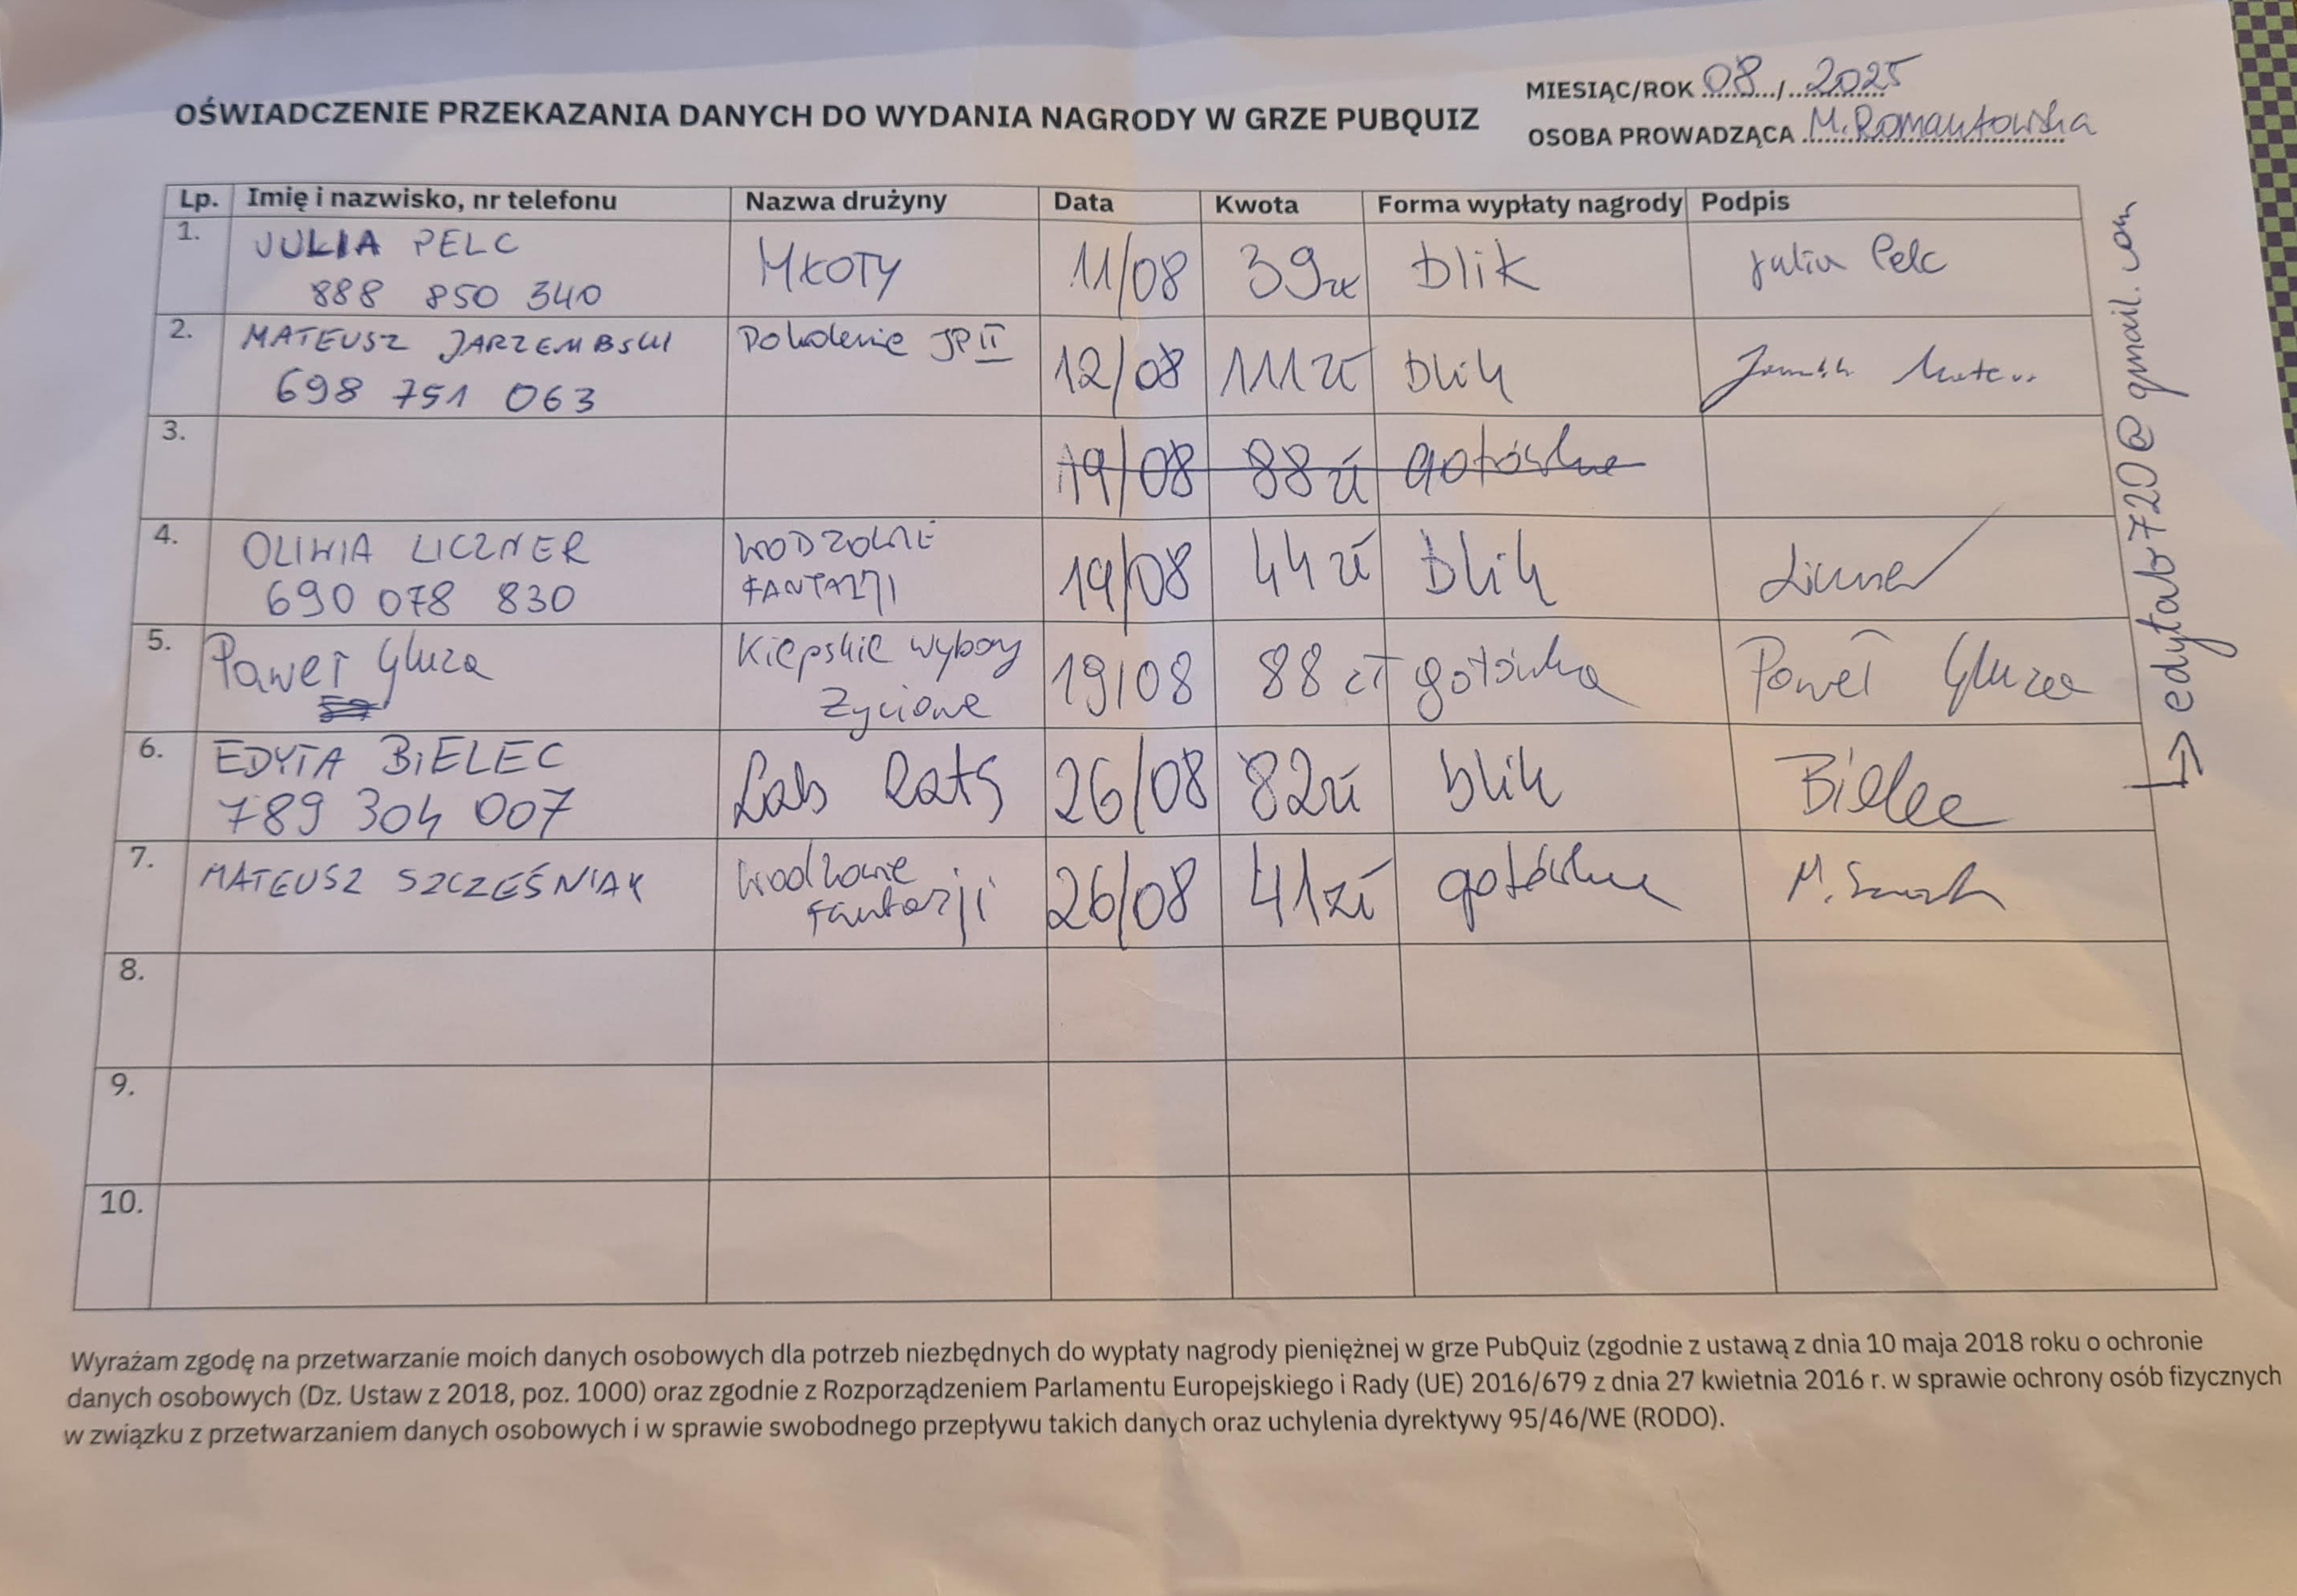 OŚWIADCZENIE PRZEKAZANIA DANYCH DO WYDANIA NAGRODY W GRZE PUBQUIZ
MIESIĄC/ROK 08 / 2025
OSOBA PROWADZĄCA M. Romantowska
Lp. Imię i nazwisko, nr telefonu Nazwa drużyny Data Kwota Forma wypłaty nagrody Podpis
1. JULIA PELC MŁOTY 11/08 39zł blik Julia Pelc
888 850 340
2. MATEUSZ JARZEMBSKI Pokolenie JP II 12/08 111 zł blik
698 751 063
3. 19/08 88 zł gotówka
4. OLIWIA LICZNER WODZOWIE 19/08 44 zł blik Liczner
690 078 830 FANTAZJI
5. Paweł Gluza Kiepskie wybory 19/08 88 zł gotówka Paweł Gluza
Życiowe
6. EDYTA BIELEC Lab Rats 26/08 82zł blik Bielec
789 304 007
edytab720@gmail.com
7. MATEUSZ SZCZEŚNIAK Wodzowie 26/08 41zł gotówka
Fantazji
8.
9.
10.
Wyrażam zgodę na przetwarzanie moich danych osobowych dla potrzeb niezbędnych do wypłaty nagrody pieniężnej w grze PubQuiz (zgodnie z ustawą z dnia 10 maja 2018 roku o ochronie
danych osobowych (Dz. Ustaw z 2018, poz. 1000) oraz zgodnie z Rozporządzeniem Parlamentu Europejskiego i Rady (UE) 2016/679 z dnia 27 kwietnia 2016 r. w sprawie ochrony osób fizycznych
w związku z przetwarzaniem danych osobowych i w sprawie swobodnego przepływu takich danych oraz uchylenia dyrektywy 95/46/WE (RODO).